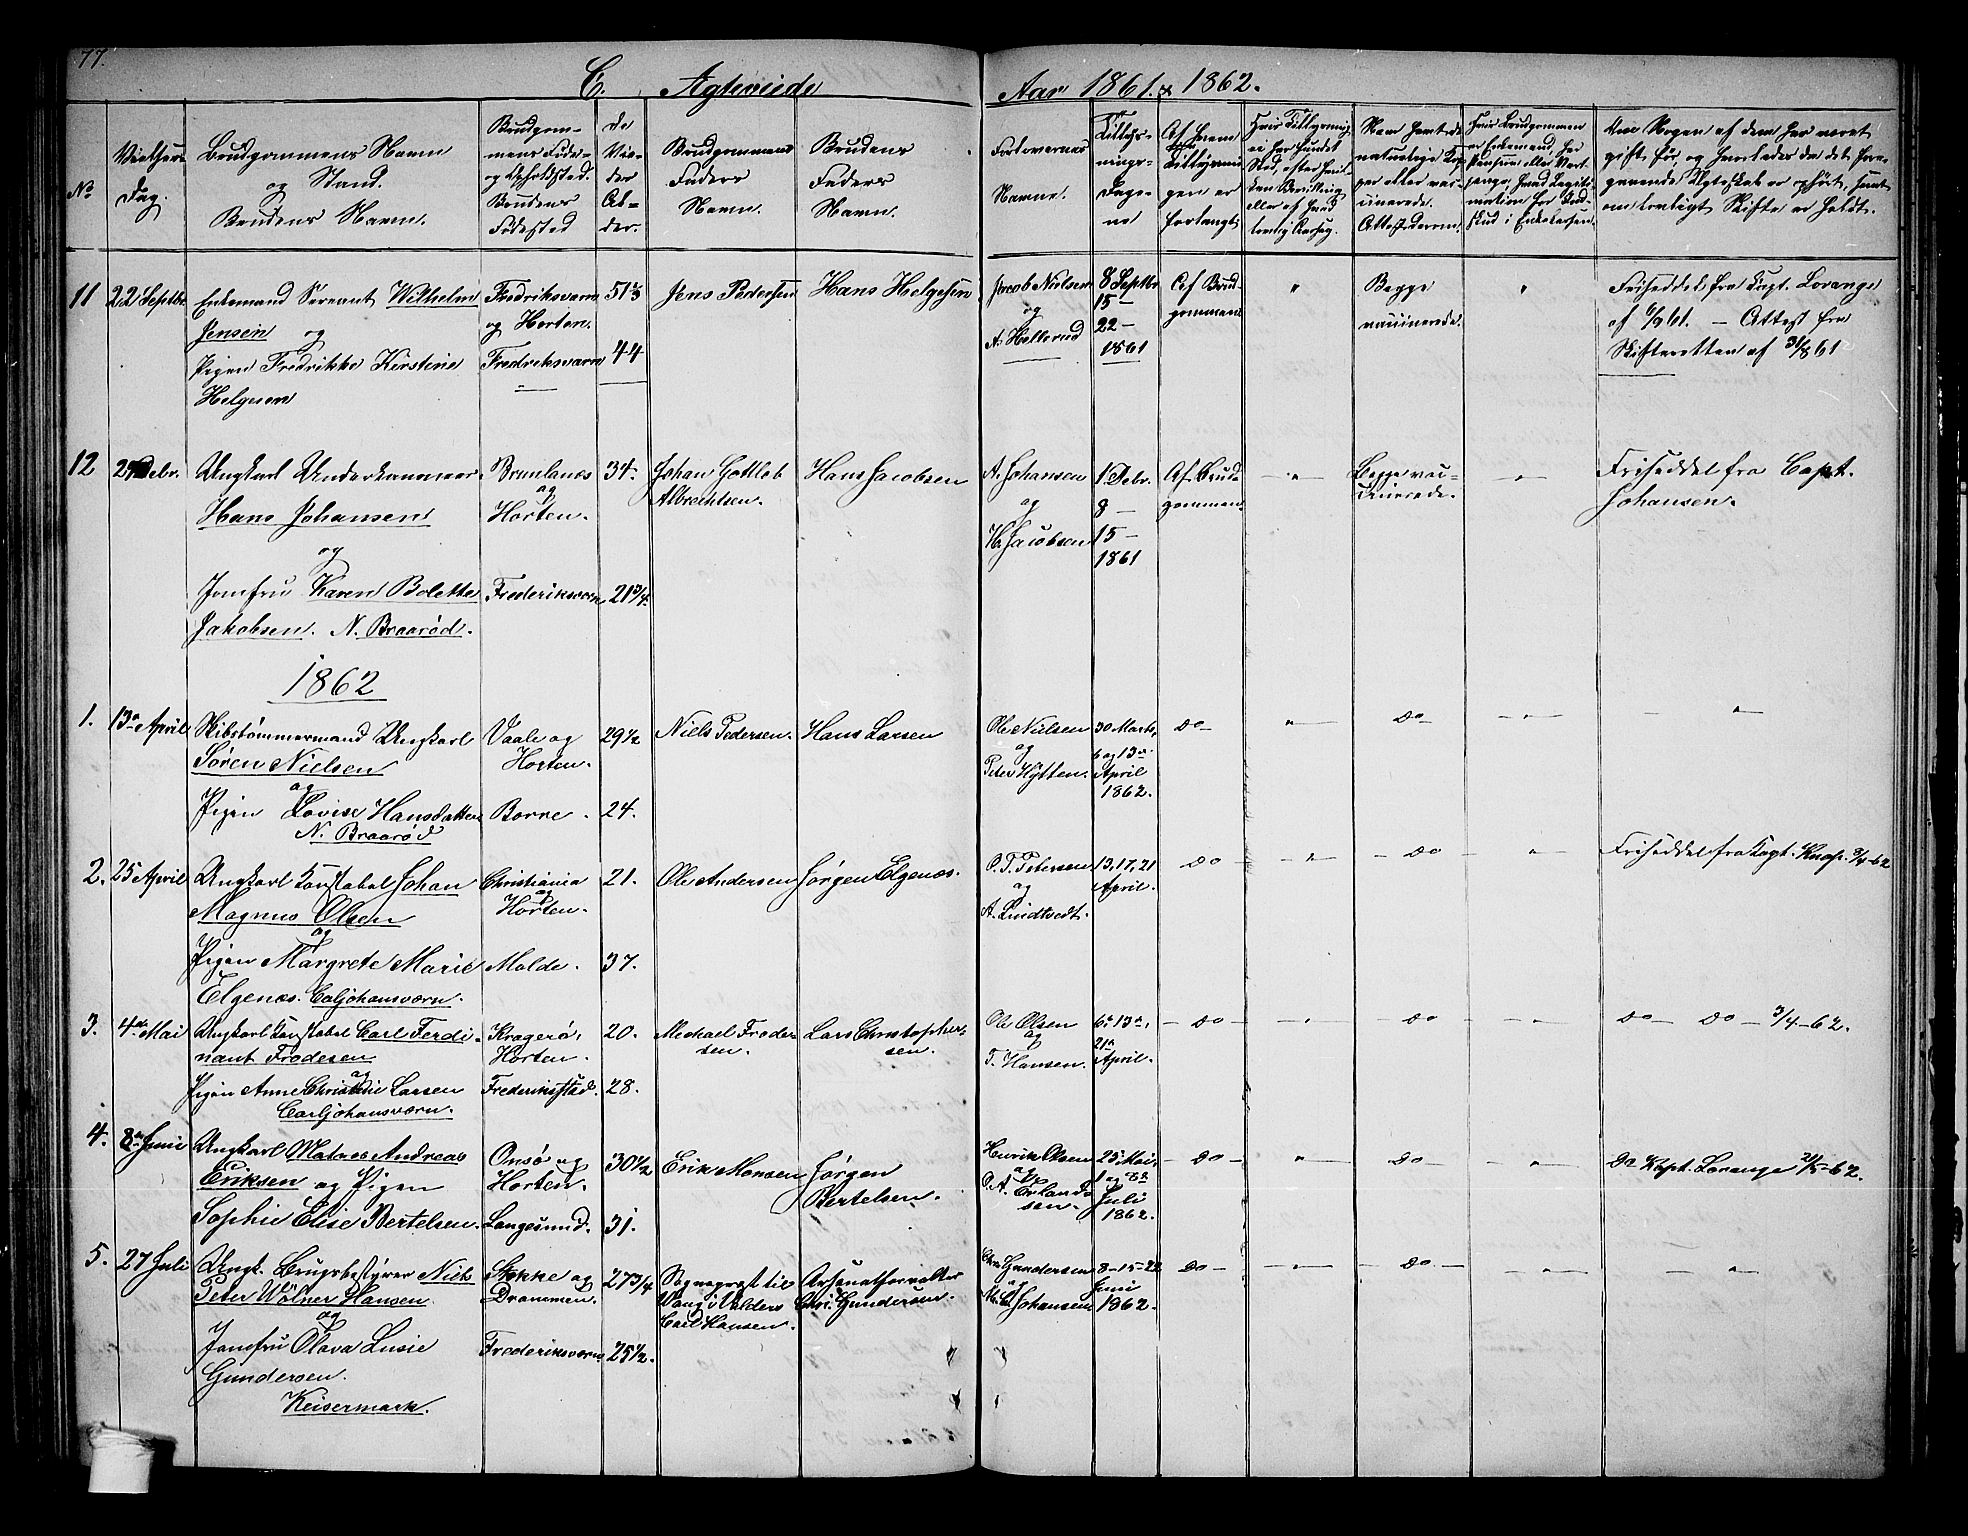 77.
C. Agteviede Aar 1861. & 1862.
No
Vielses Dag.
Brudgommens Navn
og Stand.
Brudens Navn.
Brudgom-
mens Føde-
og Opholdsted.
Brudens
Fødested
De
Vie-
des
Al-
der.
Brudgommens
Faders
Navn.
Brudens
Faders
Navn.
Forlovernes
Navne.
Tillys-
nings-
Dage-
ne
Af hvem
Tillysnin-
gen er
forlangt
11
22 Septbr.
Enkemand Sergeant Wilhelm
Jensen og
Pigen Fredrikke Kirstine
Helgesen
Fredriksværn
og Horten.
Fredriksværn
51 2/3
44
Jens Pedersen
Hans Helgesen
Jacob Nielsen
og
A. Hellerud
8 Septbr
15 —
22 —
1861
Af Brud-
gommen
"
Begge
vaccinerede.
"
Friseddel fra Capt. Lorange
af 6/9 61. — Attest fra
Skifteretten af 31/8 61
12
29 Debr.
Ungkarl Underkanoneer
Hans Johansen
og
Jomfru Karen Bolette
Jakobsen. N. Braarød.
Brunlanes
og
Horten.
Frederiksværn
34.
21 3/4.
Johan Gottlob
Albrechtsen.
Hans Jacobsen
A. Johansen
og
H. Jacobsen
1 Debr.
8 —
15 —
1861
Af Brud-
gommen.
— " —
Begge vac-
cinerede.
— " —
Friseddel fra Capt.
Johansen.
1862
1.
13de April
Skibstømmermand Ungkarl
Søren Nielsen
og
Pigen Lovise Hansdatter
N. Braarød
Vaale og
Horten.
Borre.
29 1/2
24.
Niels Pedersen.
Hans Larsen
Ole Nielsen
og
Peter Hytten.
30 Marts,
6 og 13de
April
1862.
Do
— " —
Do
— " —
"
2.
25 April
Ungkarl Konstabel Johan
Magnus Olsen
og
Pigen Margrete Marie
Elgenæs. Carljohansværn.
Christiania
og
Horten.
Molde.
21.
37.
Ole Andersen
Jørgen Elgenæs.
P. T. Petersen
og
A. Lindtvedt.
13, 17, 21
April.
Do
— " —
Do
— " —
Friseddel fra Kapt. Knap. 3/4-62
3.
4de Mai
Ungkarl Konstabel Carl Ferdi-
nant Frodesen
og
Pigen Anne Christine Larsen
Carljohansværn.
Kragerø,
Horten.
Frederiksstad.
20.
28.
Michael Frode-
sen.
Lars Christopher-
sen.
Ole Olsen
og
T. Hansen.
6te 13de,
21de
April.
— Do —
— " —
— Do —
— " —
Do — Do — 3/4-62.
4.
8de Juni
Ungkarl Matias Andreas
Eriksen og Pigen
Sophie Elise Bertelsen.
Onsø og
Horten.
Langesund.
30 1/2
31.
Erik Monsen
Jørgen
Bertelsen.
Henrik Olsen
og
P. A. Erland-
sen.
25 Mai,
1 og 8de
Juli
1862.
— Do —
— " —
— Do —
— " —
Do Kapt. Lorange 21/5-62.
5.
27 Juli
Ungk. Brugsbestyrer Niels
Peter Wølner Hansen.
og
Jomfru Olava Lusie
Gundersen.
Keisermark.
Stokke og
Drammen.
Frederiksværn
27 3/4
25 1/2.
Sognepræst til
Vang i Valders
Carl Hansen.
Arsenalforvalter
Chr. Gundersen.
Chr. Gundersen
og
Johansen
8-15-22
Juni
1862.
— Do —
— " —
— Do —
— " —
— " —